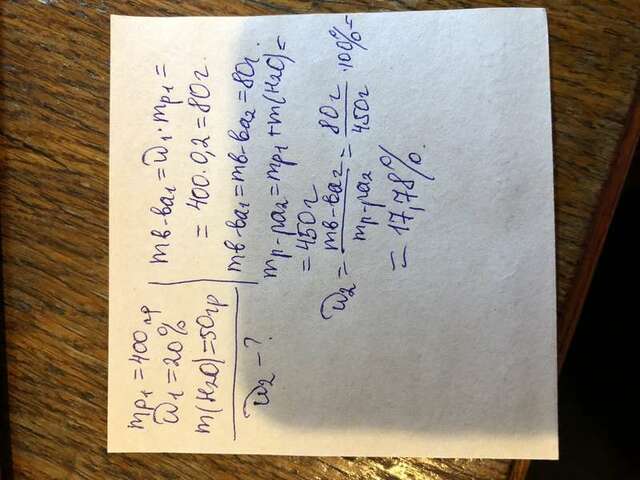 mр₁ = 400 гр
ω₁ = 20%
m(H₂O) = 50гр
ω₂ - ?
mв-ва₁ = ω₁ · mр₁ =
= 400 · 0,2 = 80г.
mв-ва₁ = mв-ва₂ = 80г.
mр-ра₂ = mр₁ + m(H₂O) =
= 450г
ω₂ = mв-ва₂ / mр-ра₂ = 80г / 450г · 100% =
= 17,78%.